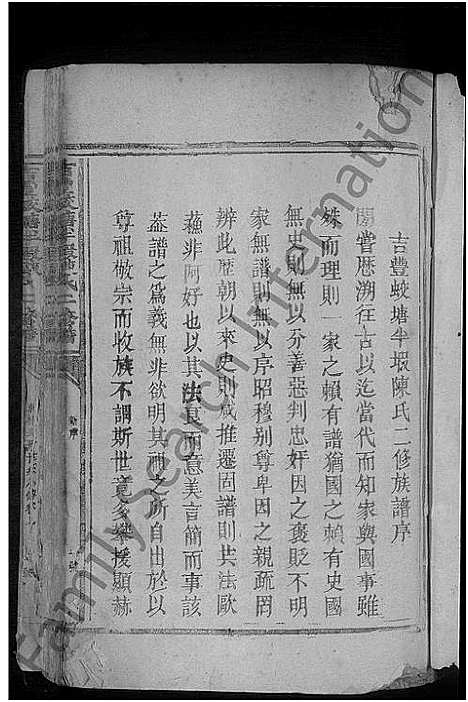 吉豐蛟塘半塅陳氏二修族譜序
間嘗歷溯往古以迄當代而知家與國事雖
殊而理則一家之賴有譜猶國之賴有史國
無史則無以分善惡判忠奸因之褒貶不明
家無譜則無以序昭穆別尊卑因之親疏罔
辨此歷朝以來史則咸推遷固譜則共法歐
蘇非阿好也以其法良而意美言簡而事該
葢譜之為義無非欲明其祖之所自出於以
尊祖敬宗而收族不謂斯世竟多攀援顯赫
FamilySearch International